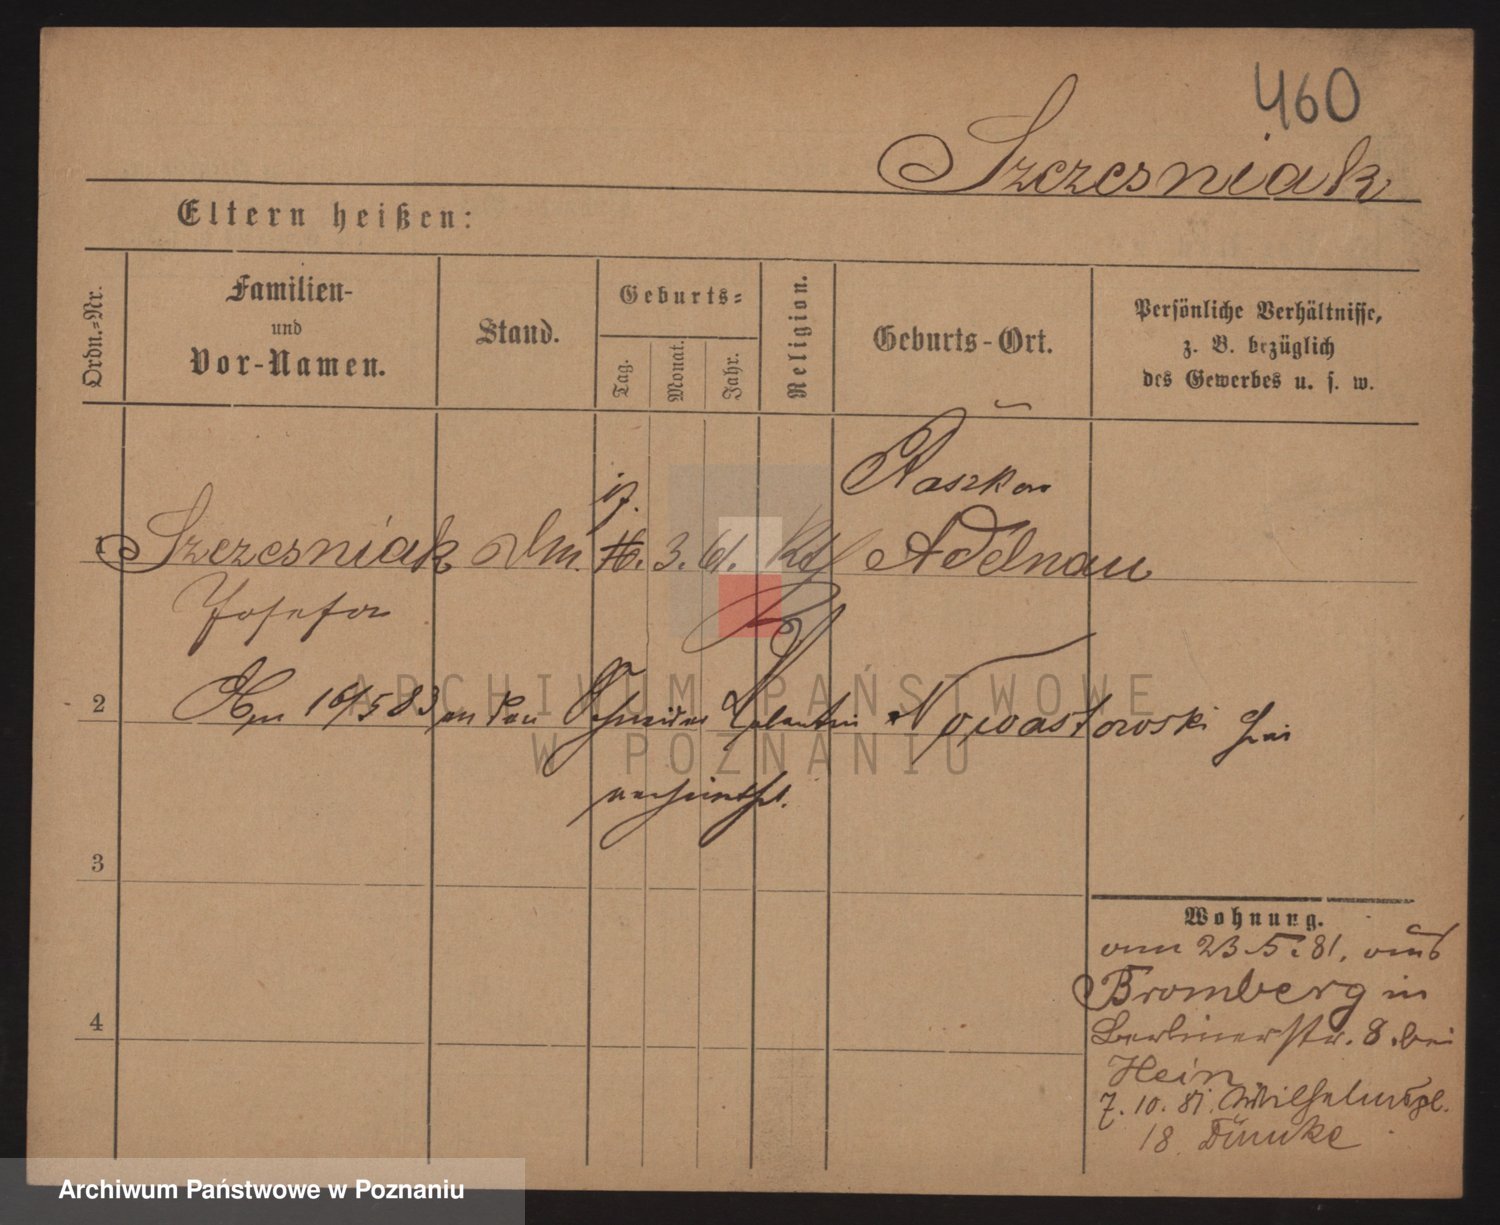 460
Szczesniak
Eltern heißen:
Ordn.-Nr.
Familien-
und
Vor-Namen.
Stand.
Geburts-
Tag.
Monat.
Jahr.
Religion.
Geburts-Ort.
Persönliche Verhältnisse,
z. B. bezüglich
des Gewerbes u. s. w.
Raszkow
1 Szczesniak 3. 61. kth Adelnau
Josefa
2 Am 16/5 83 an den Schneider Valentin Nowastowski hier
verheirathet.
3
4
Wohnung.
am 23.5.81. aus
Bromberg in
Berlinerstr. 8. bei
Hein
7. 10. 81. Wilhelmspl.
18. Dümke
ARCHIWUM PAŃSTWOWE
W POZNANIU
Archiwum Państwowe w Poznaniu